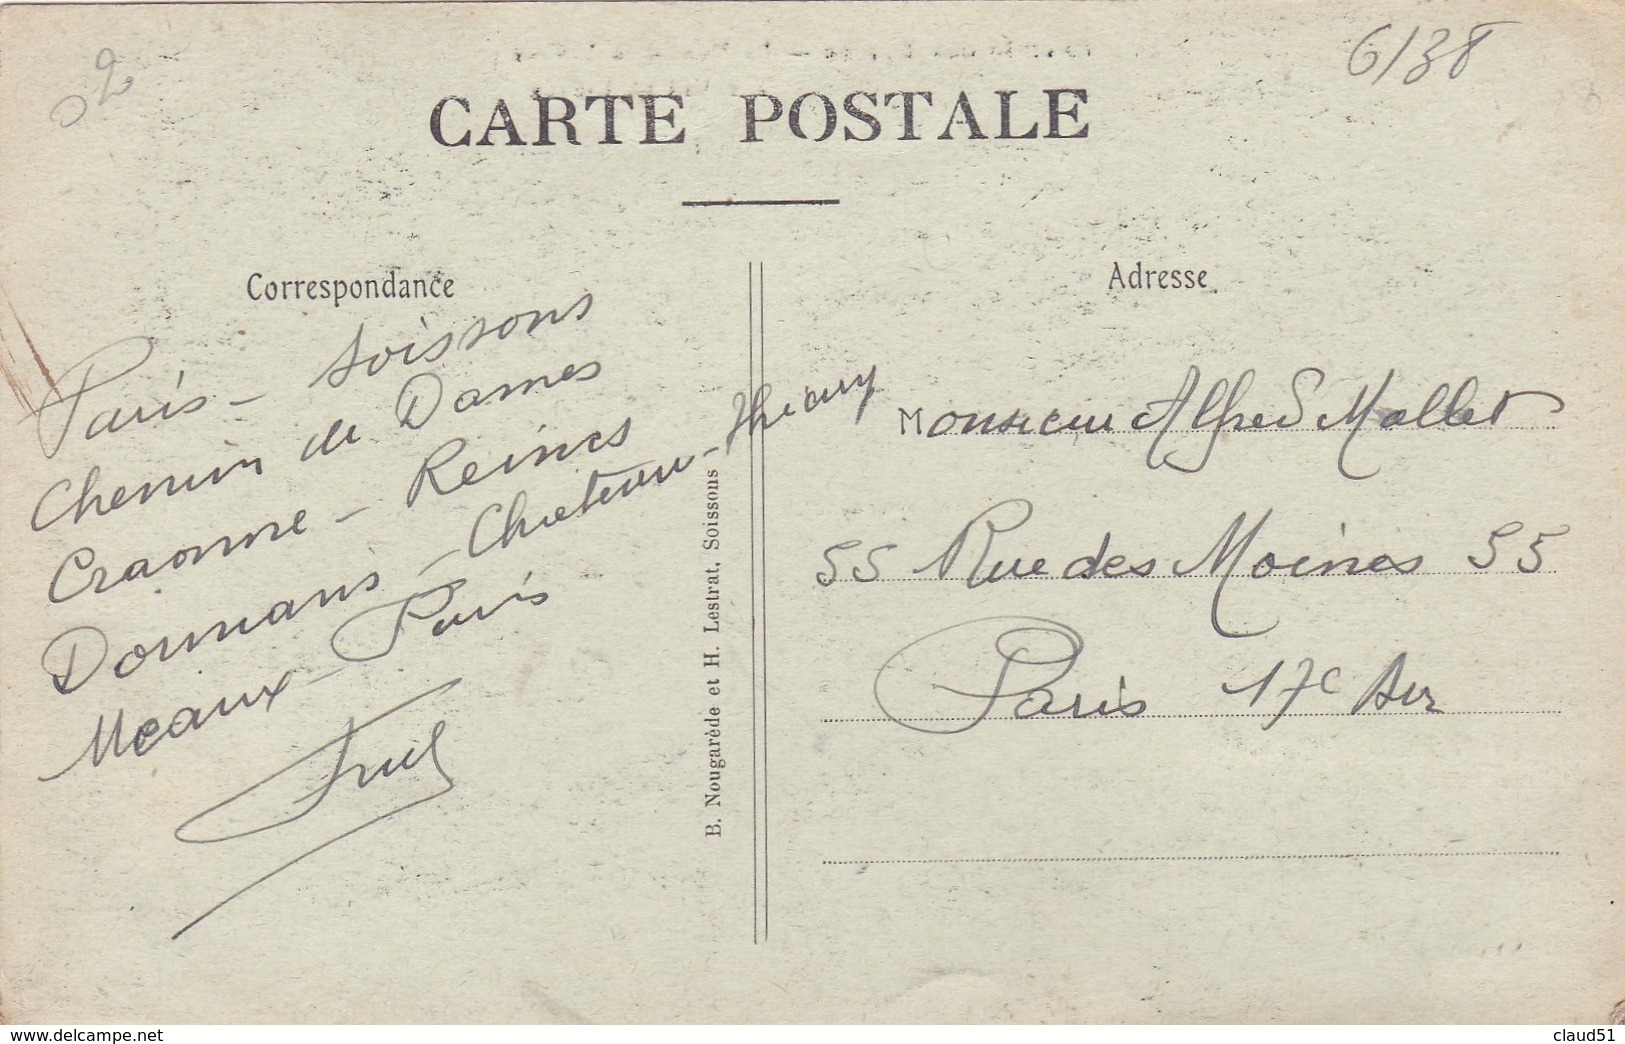 02
6/38
CARTE POSTALE
Correspondance
Paris - Soissons
Chemin de Dames
Craonne - Reims
Dormans - Chateau-Thierry
Meaux - Paris
B. Nougarède et H. Lestrat, Soissons
Adresse
Monsieur Alfred Mallet
55 Rue des Moines 55
Paris 17e Arr
www.delcampe.net
claud51